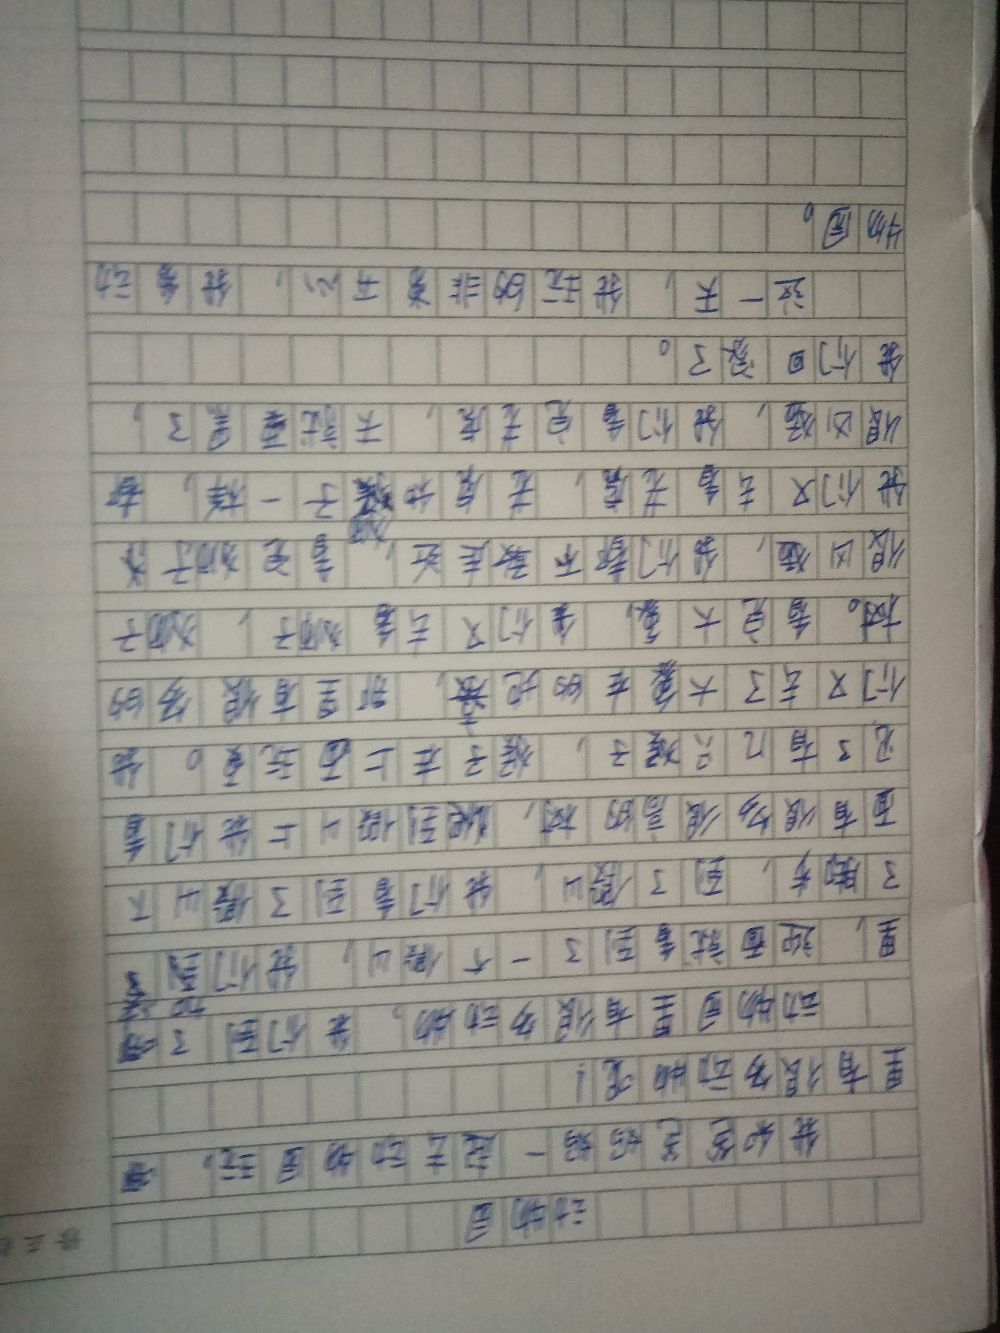 动物园
我和爸爸妈妈一起去动物园玩。那
里有很多动物呢!
动物园里有很多动物。我们到了那
里,迎面就看到了一个假山,我们到
了脚步,到了假山,我们看到了假山下
面有很多很高的树,爬到假山上我们看
见了有几只猴子,猴子在上面玩耍。我
们又去了大象在的地方,那里有很多的
树。看完大象,我们又去看狮子,狮子
很凶猛,我们都不敢走近,看完狮子
我们又去看老虎,老虎和狮子一样,都
很凶猛,我们看完老虎,天就要黑了,
我们回家了。
这一天,我玩的非常开心,我动
物园。